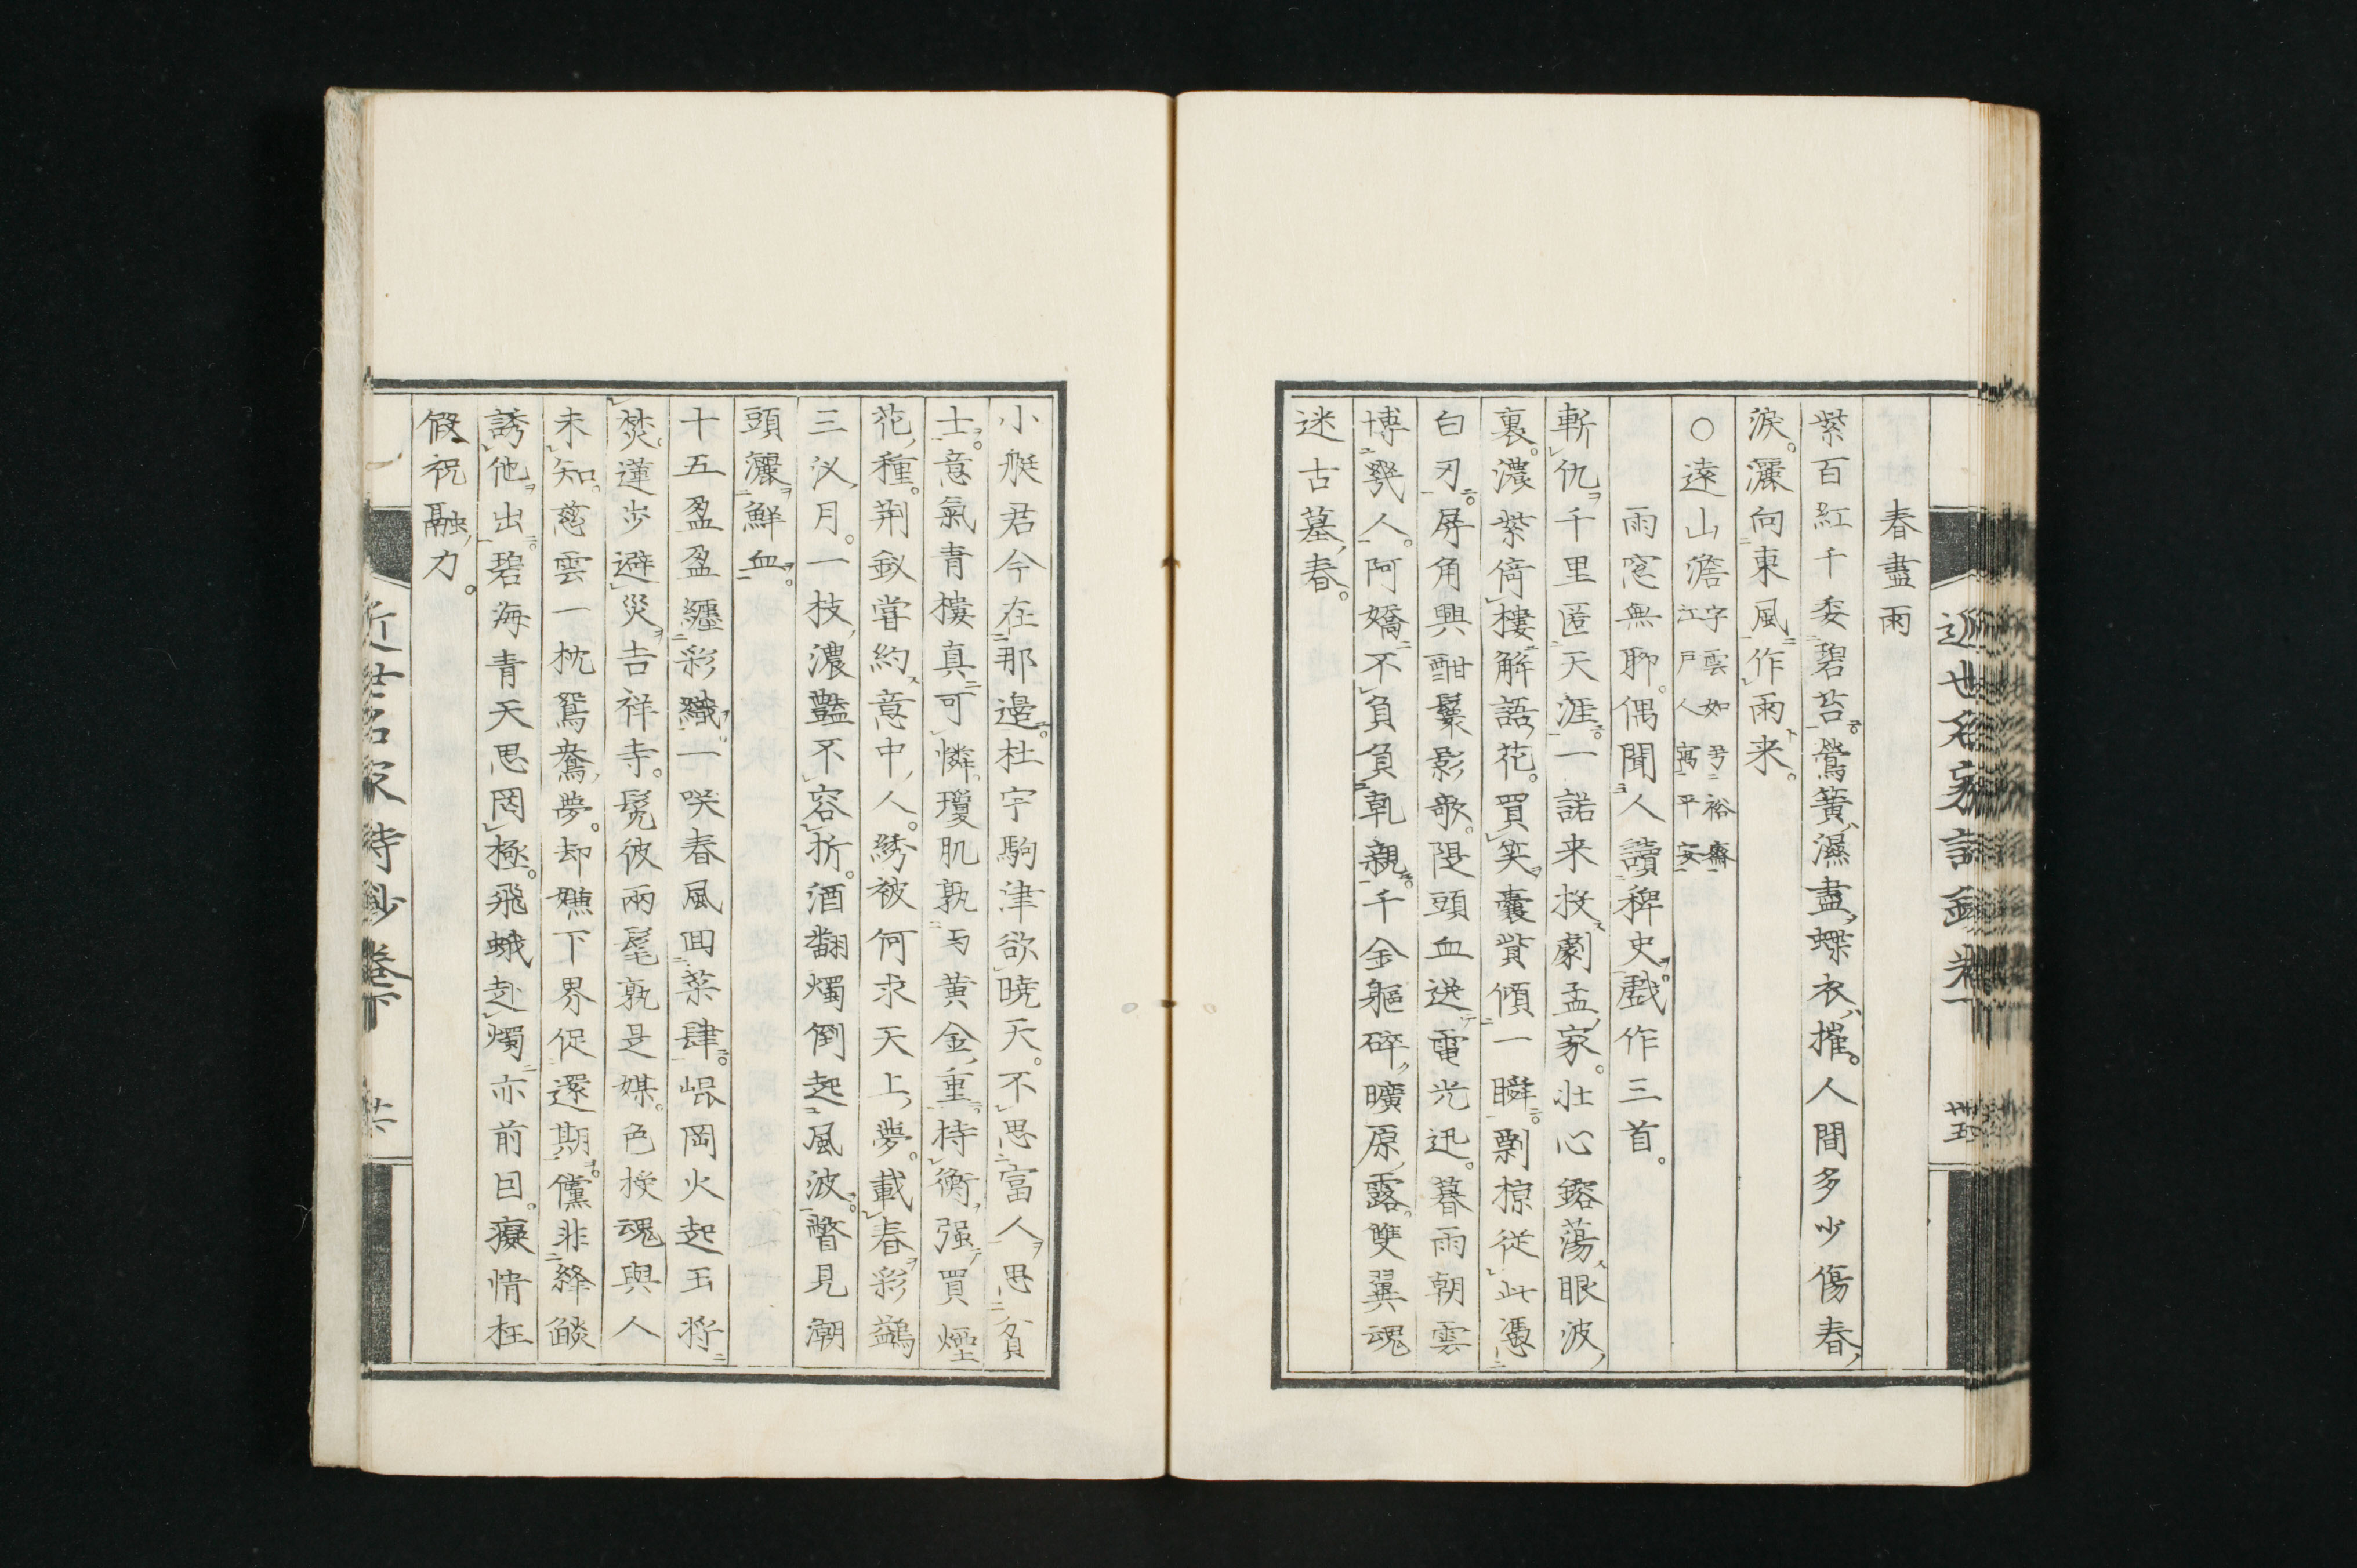 春盡雨
紫百紅千委碧苔。鶯簧濕盡蝶衣摧。人間多少傷春
淚。灑向東風作雨来。
○遠山澹字雲如号裕齋江戸人寓平安
雨窓無聊。偶聞人讀稗史。戲作三首。
斬仇千里匿天涯。一諾来投劇孟家。壮心鎔蕩眼波
裏。濃紫倚樓解語花。買笑嚢貲傾一瞬。剽掠從此憑
白刃。屏角興酣鬟影歌。隄頭血迸電光迅。暮雨朝雲
博幾人。阿嬌不負負乾親。千金軀碎曠原露。雙翼魂
迷古墓春。
小艇君今在那邉。杜宇駒津欲曉天。不思富人思貧
士。意氣青樓真可憐。瓊肌孰与黄金重。持衡强買煙
花種。荆釵甞約意中人。綉被何求天上夢。載春彩鷁
三汊月。一枝濃豔不容折。酒翻燭倒起風波。瞥見潮
頭灑鮮血。
十五盈盈纏彩織。一咲春風回菜肆。崐岡火起玉将
焚。蓮步避災吉祥寺。髡彼兩髦孰是媒。色授魂與人
未知。慈雲一枕鴛鴦夢。却嫌下界促還期。儻非絳㷔
誘他出。碧海青天思罔極。飛蛾赴燭亦前因。癡情枉
假祝融力。
近世名家詩鈔卷下
卅五
近世名家詩鈔卷下